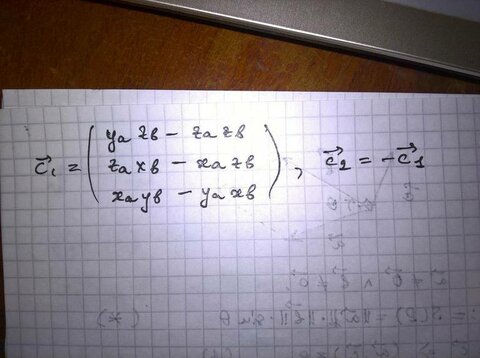 c⃗₁ = ( yₐ z_b − zₐ z_b
zₐ x_b − xₐ z_b
xₐ y_b − yₐ x_b ) , c⃗₂ = − c⃗₁
(*)